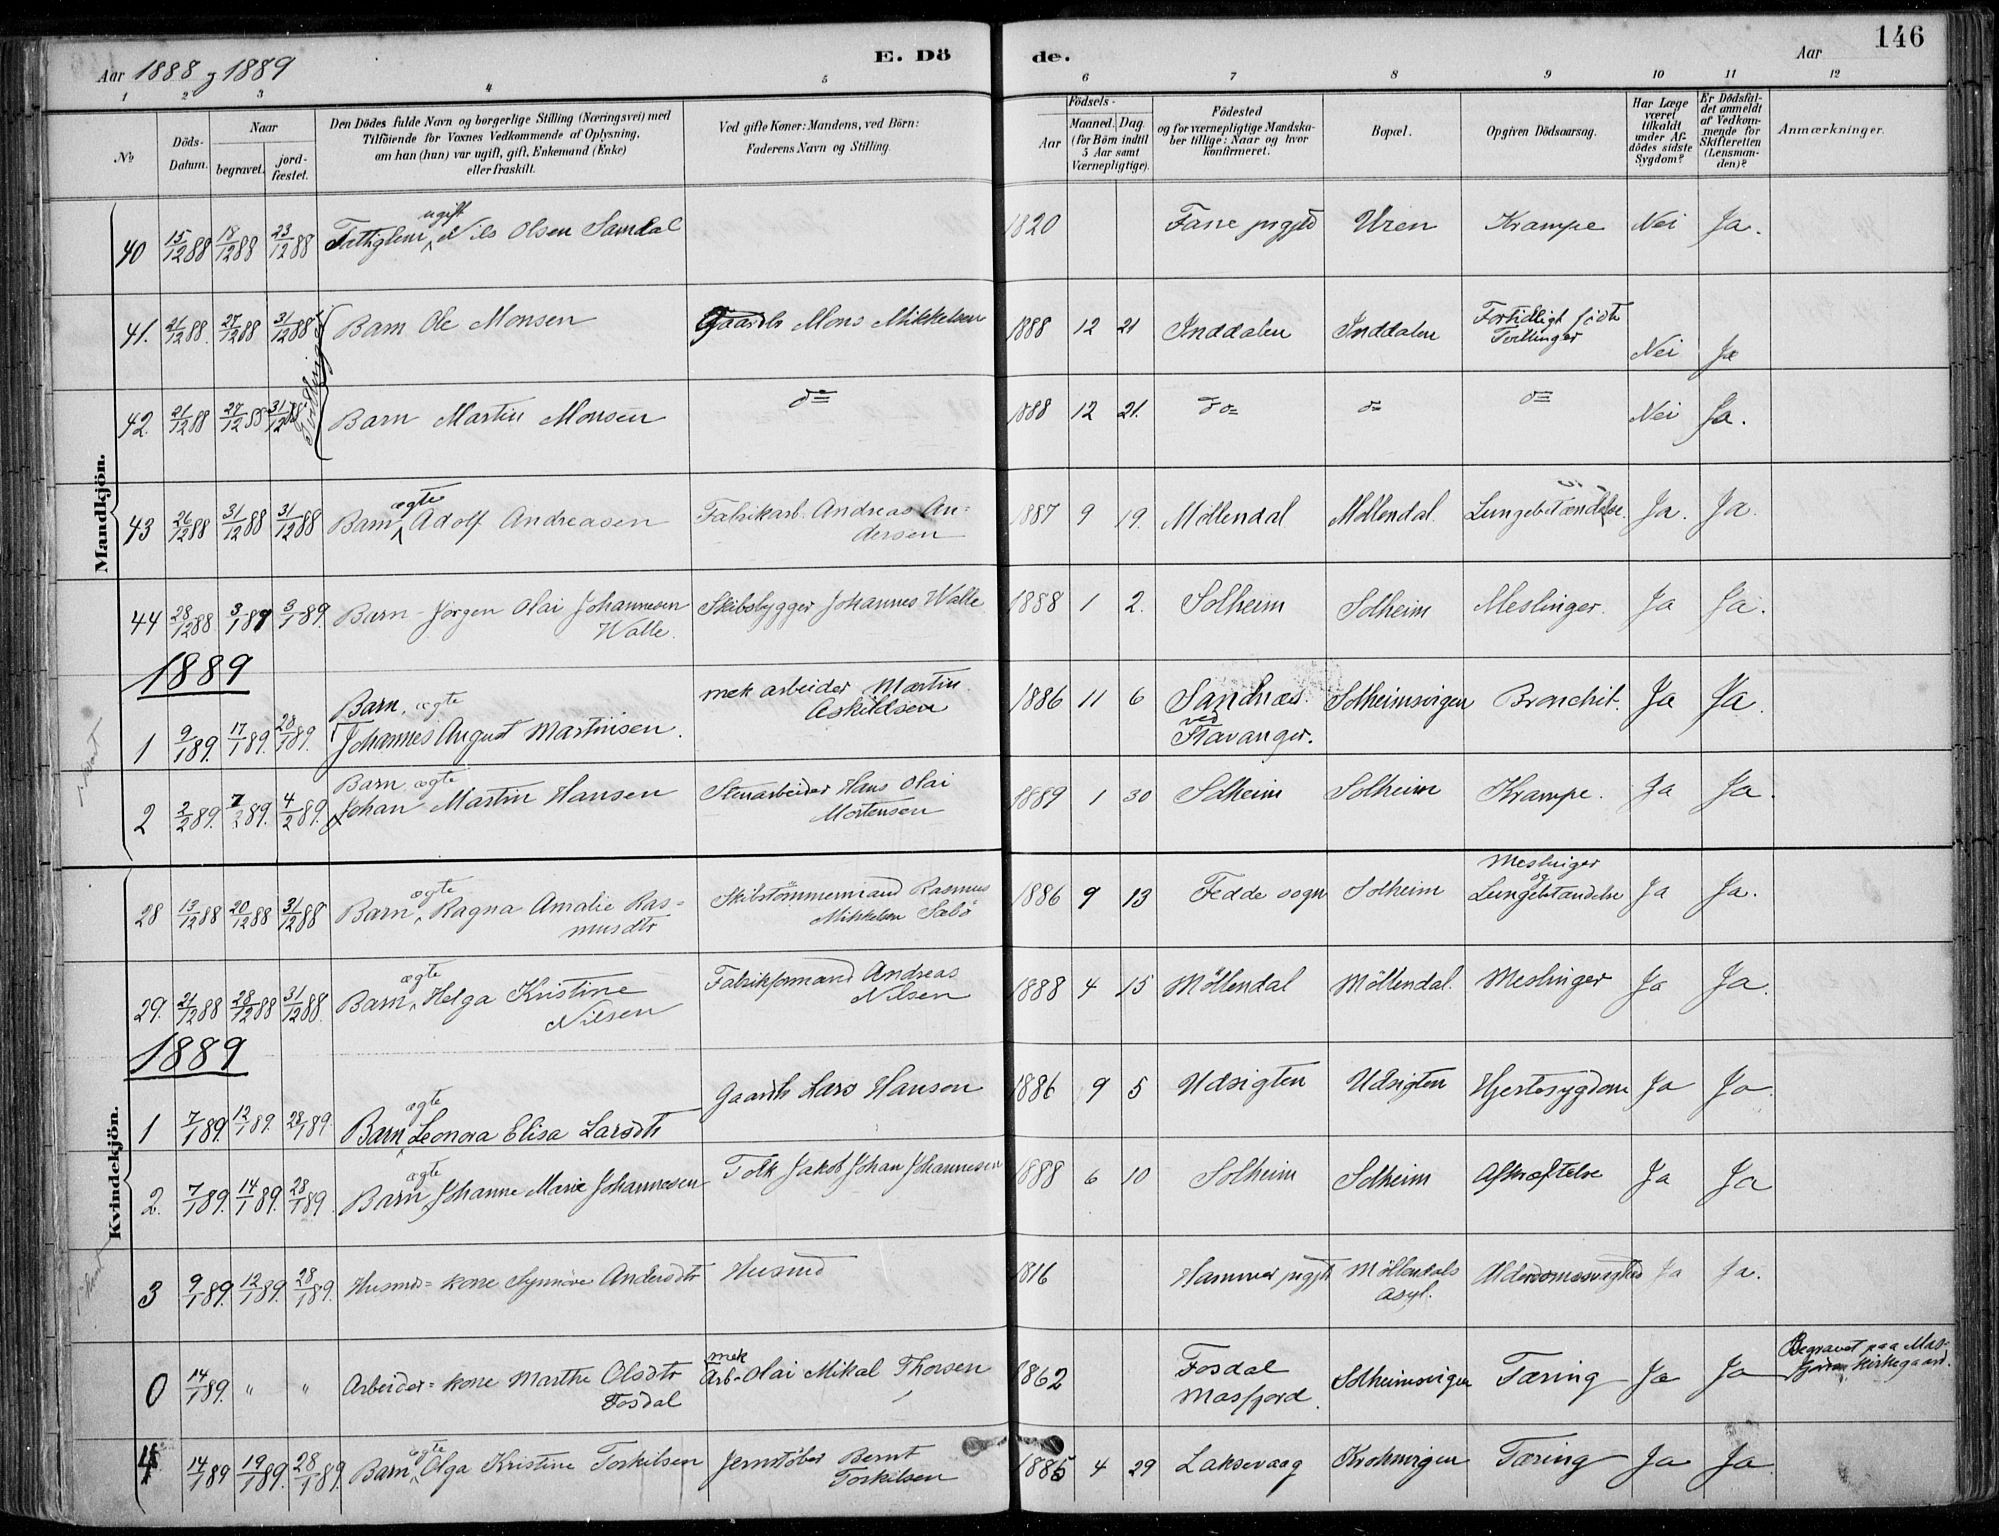 146
Aar 1888 og 1889
E. Döde.
Aar
1 2 3 4 5 6 7 8 9 10 11 12
№
Döds-Datum.
Naar
begravet.
jordfæstet.
Den Dödes fulde Navn og borgerlige Stilling (Næringsvei) med
Tilföiende for Voxnes Vedkommende af Oplysning,
om han (hun) var ugift, gift, Enkemand (Enke)
eller fraskilt.
Ved gifte Koner: Mandens, ved Börn:
Faderens Navn og Stilling.
Födsels-
Aar
Maaned. Dag
(for Börn indtil
5 Aar samt
Værnepligtige).
Födested
og for værnepligtige Mandska-
ber tillige: Naar og hvor
konfirmeret.
Bopæl.
Opgiven Dödsaarsag.
Har Læge
været
tilkaldt
under Af-
dödes sidste
Sygdom?
Er Dödsfal-
det anmeldt
af Vedkom-
mende for
Skifteretten
(Lensman-
den)?
Anmærkninger.
Mandkjön.
40 15/12 88 18/12 88 23/12 88 ugift Nils Olsen Sandal 1820 Fane prgjld Uren Krampe Nei Ja.
41. 21/12 88. 27/12 88 31/12 88 Barn Ole Monsen Gaardb Mons Mikkelsen 1888 12 21 Inddalen Inddalen Fortidligt födte Tvillinger Nei Ja
Tvillinger
42. 21/12 88 27/12 88 31/12 88 Barn Martin Monsen do 1888 12 21. do do do Nei Ja.
43 26/12 88 31/12 88 31/12 88 Barn ægte Adolf Andreasen Fabrikarb. Andreas An-
dersen 1887 9 19. Möllendal Möllendal. Lungebetændelse. Ja. Ja.
44 28/12 88. 3/1 89 3/1 89. Barn Jörgen Olai Johannesen
Walle. Skibsbygger Johannes Walle 1888 1 2. Solheim Solheim Meslinger. Ja Ja.
1889
1 9/1 89. 17/1 89. 28/1 89. Barn, ægte
Johannes August Martinsen. mek arbeider Martin
Askildsen 1886 11 6 Sandnæs.
ved
Stavanger. Solheimsvigen Bronchit. Ja Ja.
2 2/2 89. 7/2 89. 4/2 89. Barn ægte
Johan Martin Hansen Stenarbeider Hans Olai
Mortensen 1889 1 30 Solheim Solheim Krampe. Ja Ja.
Kvindekjön.
28 13/12 88 20/12 88 31/12 88 Barn ægte Ragna Amalie Ras-
musdtr Skibstömmermand Rasmus
Mikkelsen Sæbö 1886 9 13 Fedde sogn Solheim Meslinger
og
Lungebetændelse Ja Ja.
29. 21/12 88 28/12 88 31/12 88. Barn ægte Helga Kristine
Nilsen Fabrikformand Andreas
Nilsen 1888 4 15 Möllendal Möllendal. Meslinger Ja Ja.
1889
1 7/1 89. 12/1 89. 28/1 89. Barn ægte Leonora Elisa Larsdtr Gaardb Lars Hanson 1886 9 5 Udsigten Udsigten Hjertesygdom Ja Ja.
2. 7/1 89. 14/1 89. 28/1 89 Barn ægte Johanne Marie Johannesen Tolk Jakob Johan Johannesen 1888 6 10 Solheim Solheim Afkræftelse Ja Ja
3 9/1 89. 12/1 89. 28/1 89. Husmds-kone Synnöve Andersdtr Husmd 1816 Hammer prgjld Möllendals
Asyl. Alderdomssvaghed Ja Ja.
0 14/1 89. " " Arbeider-kone Marthe Olsdtr
Fosdal mek
Arb. Olai Mikal Thorsen 1862 Fosdal
Masfjord. Solheimsvigen Tæring Ja Ja Begravet paa Mas-
fjorden Kirkegaard.
4 14/1 89 19/1 89. 28/1 89. Barn ægte Olga Kristine Torkilsen Jernstöber Bernt
Torkilsen 1885 4 29 Laksevaag Krohnvigen Tæring Ja Ja.